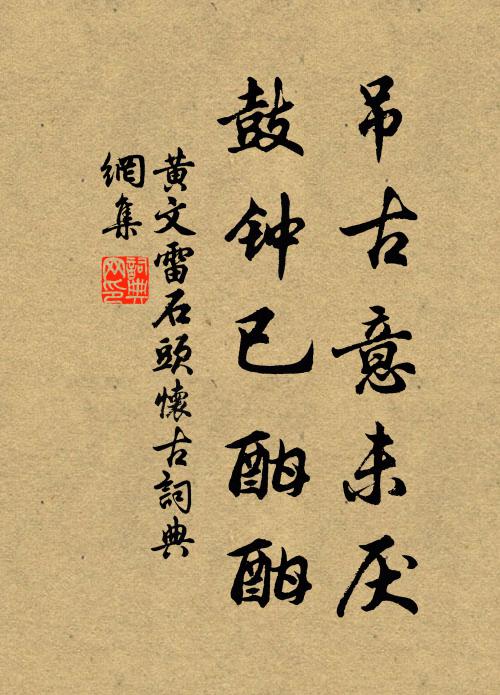 吊古意未厌
鼓钟已酣酣
黄文雷石頭懷古詞典
網集
詞典
网印